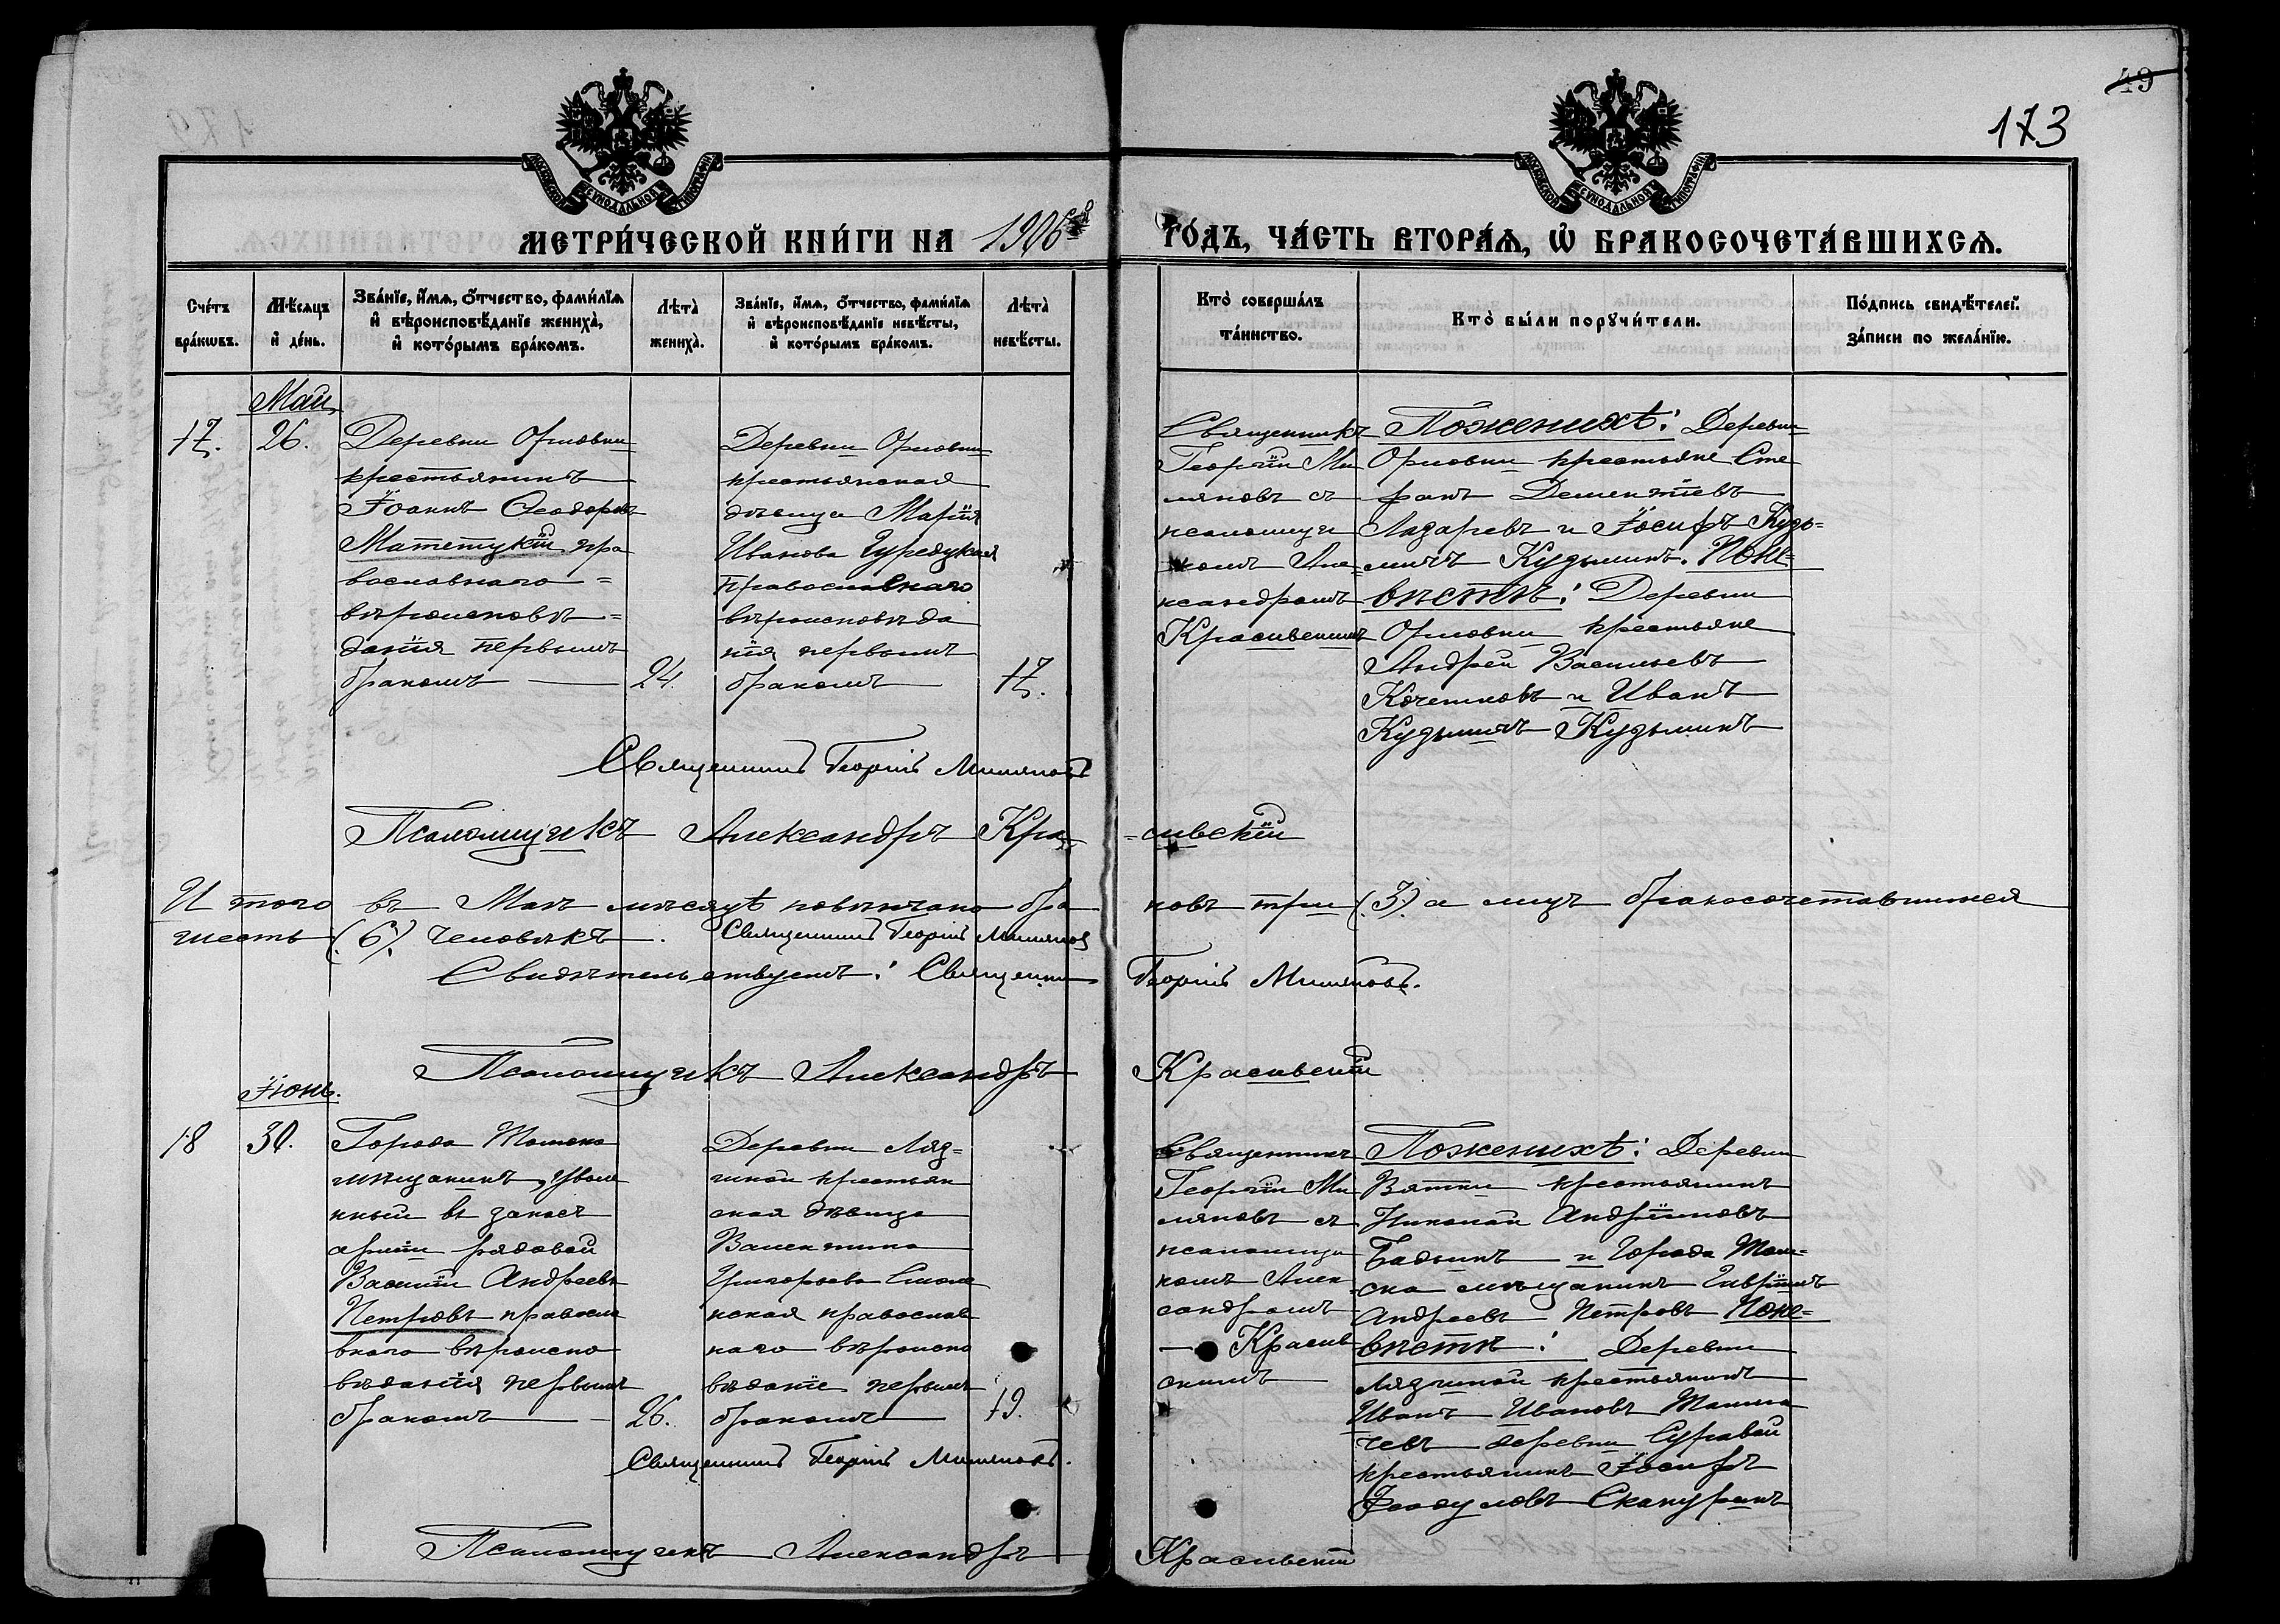 49
173
МОСКОВСКОЙ СѴНОДАЛЬНОЙ ТИПОГРАФІИ
МОСКОВСКОЙ СѴНОДАЛЬНОЙ ТИПОГРАФІИ
МЕТРИ́ЧЕСКОЙ КНИ́ГИ НА 1906й
ГО́ДЪ, ЧА́СТЬ ВТОРА́Ѧ, Ѽ БРАКОСОЧЕТА́ВШИХСѦ.
Сче́тъ
бра́кѡвъ.
Мѣ́сяцъ
и҆ де́нь.
Зва́нїе, и҆́мѧ, ѻ҆́тчество, фами́лїѧ
и҆ вѣроисповѣ́данїе жениха̀,
и҆ кото́рымъ бра́комъ.
Лѣта̀
жениха̀.
Зва́нїе, и҆́мѧ, ѻ҆́тчество, фами́лїѧ
и҆ вѣроисповѣ́данїе невѣ́сты,
и҆ кото́рымъ бра́комъ.
Лѣта̀
невѣ́сты.
Кто̀ соверша́лъ
та́инство.
Кто̀ бы́ли порꙋчи́тели.
По́дпись свидѣ́телей
за́писи по жела́нїю.
Май
17.
26.
Деревни Орловки
крестьянинъ
Іоаннъ Ѳеодоровъ
Матетукій пра
вославнаго =
вѣроисповѣ =
данія первымъ
бракомъ
24.
Деревни Орловки
крестьянская
дѣвица Марія
Иванова Чуредукая
православнаго
вѣроисповѣда
нія первымъ
бракомъ
17.
Священникъ
Георгій Ми
ляновъ съ
псаломщи
комъ Але
ксандромъ
Красивскимъ
Поженихѣ: Деревни
Орловки крестьяне Сте
фанъ Дементіевъ
Лазаревъ и Іосифъ Кузь=
мичъ Кузьминъ. Поне=
вѣстѣ: Деревни
Орловки крестьяне
Андрей Васильевъ
Кочетковъ и Иванъ
Кузьмичъ Кузьминъ
Священникъ Георгій Миляновъ
Псаломщикъ Александръ Кра
=сивскій
Итого въ Маѣ мѣсяцѣ повѣнчано бра
ковъ три (3) а лицъ бракосочетавшихся
шесть (6) человѣкъ. Священникъ Георгій Миляновъ
Свидѣтельствуемъ: Священникъ
Георгій Миляновъ.
Псаломщикъ Александръ
Красивскій
Іюнь.
18
30.
Города Томска
мѣщанинъ, уволе
нный въ запасъ
арміи рядовой
Василій Андреевъ
Петровъ правосла
внаго вѣроиспо
вѣданія первымъ
бракомъ
26.
Деревни Ляз=
гиной крестьян
ская дѣвица
Валентина
Григорьева Смоле
нская православ
наго вѣроиспо
вѣданіе первымъ
бракомъ
19.
Священникъ
Георгій Ми
ляновъ съ
псаломщи
комъ Алек
сандромъ
Красив
скимъ
Поженихѣ: Деревни
Вятки крестьянинъ
Николай Андріяновъ
Бадьинъ и Города Том=
ска мѣщанинъ Гавріилъ
Андреевъ Петровъ Поне=
вѣстѣ: Деревни
Лязгиной крестьянинъ
Иванъ Ивановъ Толма
чевъ деревни Суровой
крестьянинъ Іосифъ
Скакуринъ
Священникъ Георгій Миляновъ.
Псаломщикъ Александръ
Красивскій